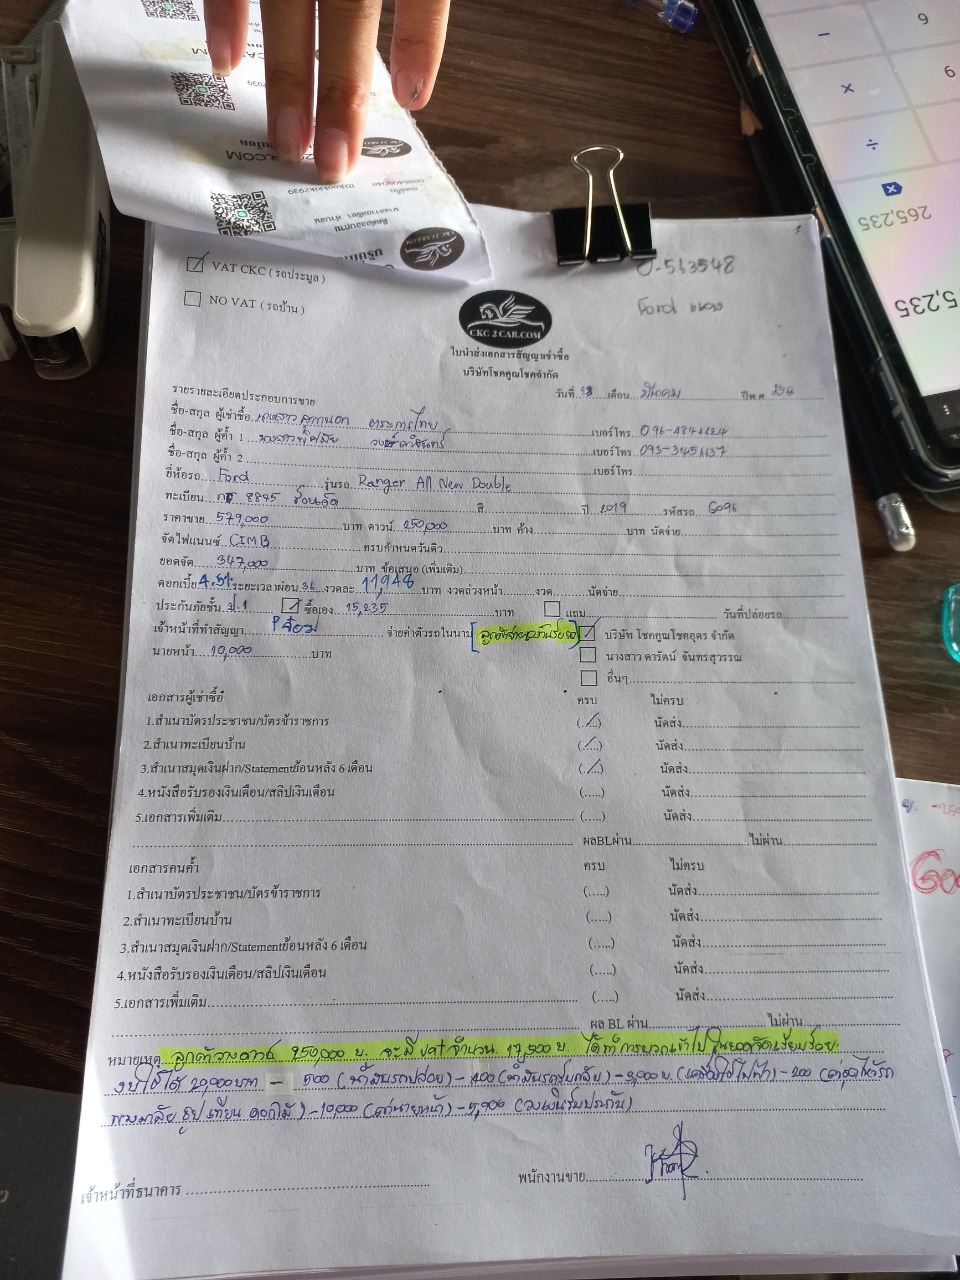 265,235
VAT CKC ( รถประมูล )
NO VAT ( รถบ้าน )
0-513548
Ford
CKC 2 CAR.COM
ใบนำส่งเอกสารสัญญาเช่าซื้อ
บริษัทโชคคูณโชคจำกัด
รายรายละเอียดประกอบการขาย
วันที่ เดือน มีนาคม ปีพ.ศ.
ชื่อ-สกุล ผู้เช่าซื้อ นางสาว ตระการไทย เบอร์โทร.
ชื่อ-สกุล ผู้ค้ำ 1 นางสาว เบอร์โทร.
ชื่อ-สกุล ผู้ค้ำ 2 เบอร์โทร
ยี่ห้อรถ Ford รุ่นรถ Ranger All New Double
ทะเบียน 8895 ร้อยเอ็ด สี ปี 2019 รหัสรถ G096
ราคาขาย 579,000 บาท ดาวน์ 250,000 บาท ค้าง บาท นัดจ่าย
จัดไฟแนนซ์ CIMB ครบกำหนดวันดิว
ยอดจัด 347,000 บาท ข้อเสนอ (เพิ่มเติม)
ดอกเบี้ย ระยะเวลาผ่อน 36 งวดละ 11,948 บาท งวดล่วงหน้า งวด นัดจ่าย
ประกันภัยชั้น ป.1 ซื้อเอง 15,235 บาท แถม วันที่ปล่อยรถ
เจ้าหน้าที่ทำสัญญา จ่ายค่าตัวรถในนาม บริษัท โชคคูณโชคอุดร จำกัด
นายหน้า 10,000 บาท นางสาว ดารัตน์ จันทรสุวรรณ
อื่นๆ
เอกสารผู้เช่าซื้อ ครบ ไม่ครบ
1.สำเนาบัตรประชาชน/บัตรข้าราชการ (/) นัดส่ง
2.สำเนาทะเบียนบ้าน (/) นัดส่ง
3.สำเนาสมุดเงินฝาก/Statementย้อนหลัง 6 เดือน (/) นัดส่ง
4.หนังสือรับรองเงินเดือน/สลิปเงินเดือน (.....) นัดส่ง
5.เอกสารเพิ่มเติม (.....) นัดส่ง
ผลBLผ่าน ไม่ผ่าน
เอกสารคนค้ำ ครบ ไม่ครบ
1.สำเนาบัตรประชาชน/บัตรข้าราชการ (.....) นัดส่ง
2.สำเนาทะเบียนบ้าน (.....) นัดส่ง
3.สำเนาสมุดเงินฝาก/Statementย้อนหลัง 6 เดือน (.....) นัดส่ง
4.หนังสือรับรองเงินเดือน/สลิปเงินเดือน (.....) นัดส่ง
5.เอกสารเพิ่มเติม (.....) นัดส่ง
ผล BL ผ่าน ไม่ผ่าน
หมายเหตุ ลูกค้าวางดาวน์ 250,000 บ. จะมี vat จำนวน 17,500 บ. ได้ทำการบวกเข้าไปในยอดจัดเรียบร้อย
งบใช้ได้ 20,000 บาท - 500 (น้ำมันรถปล่อย) - 400 - 200
พวงมาลัย ธูป เทียน ดอกไม้) - 10,000 (ค่านายหน้า) - 5,900
พนักงานขาย
เจ้าหน้าที่ธนาคาร